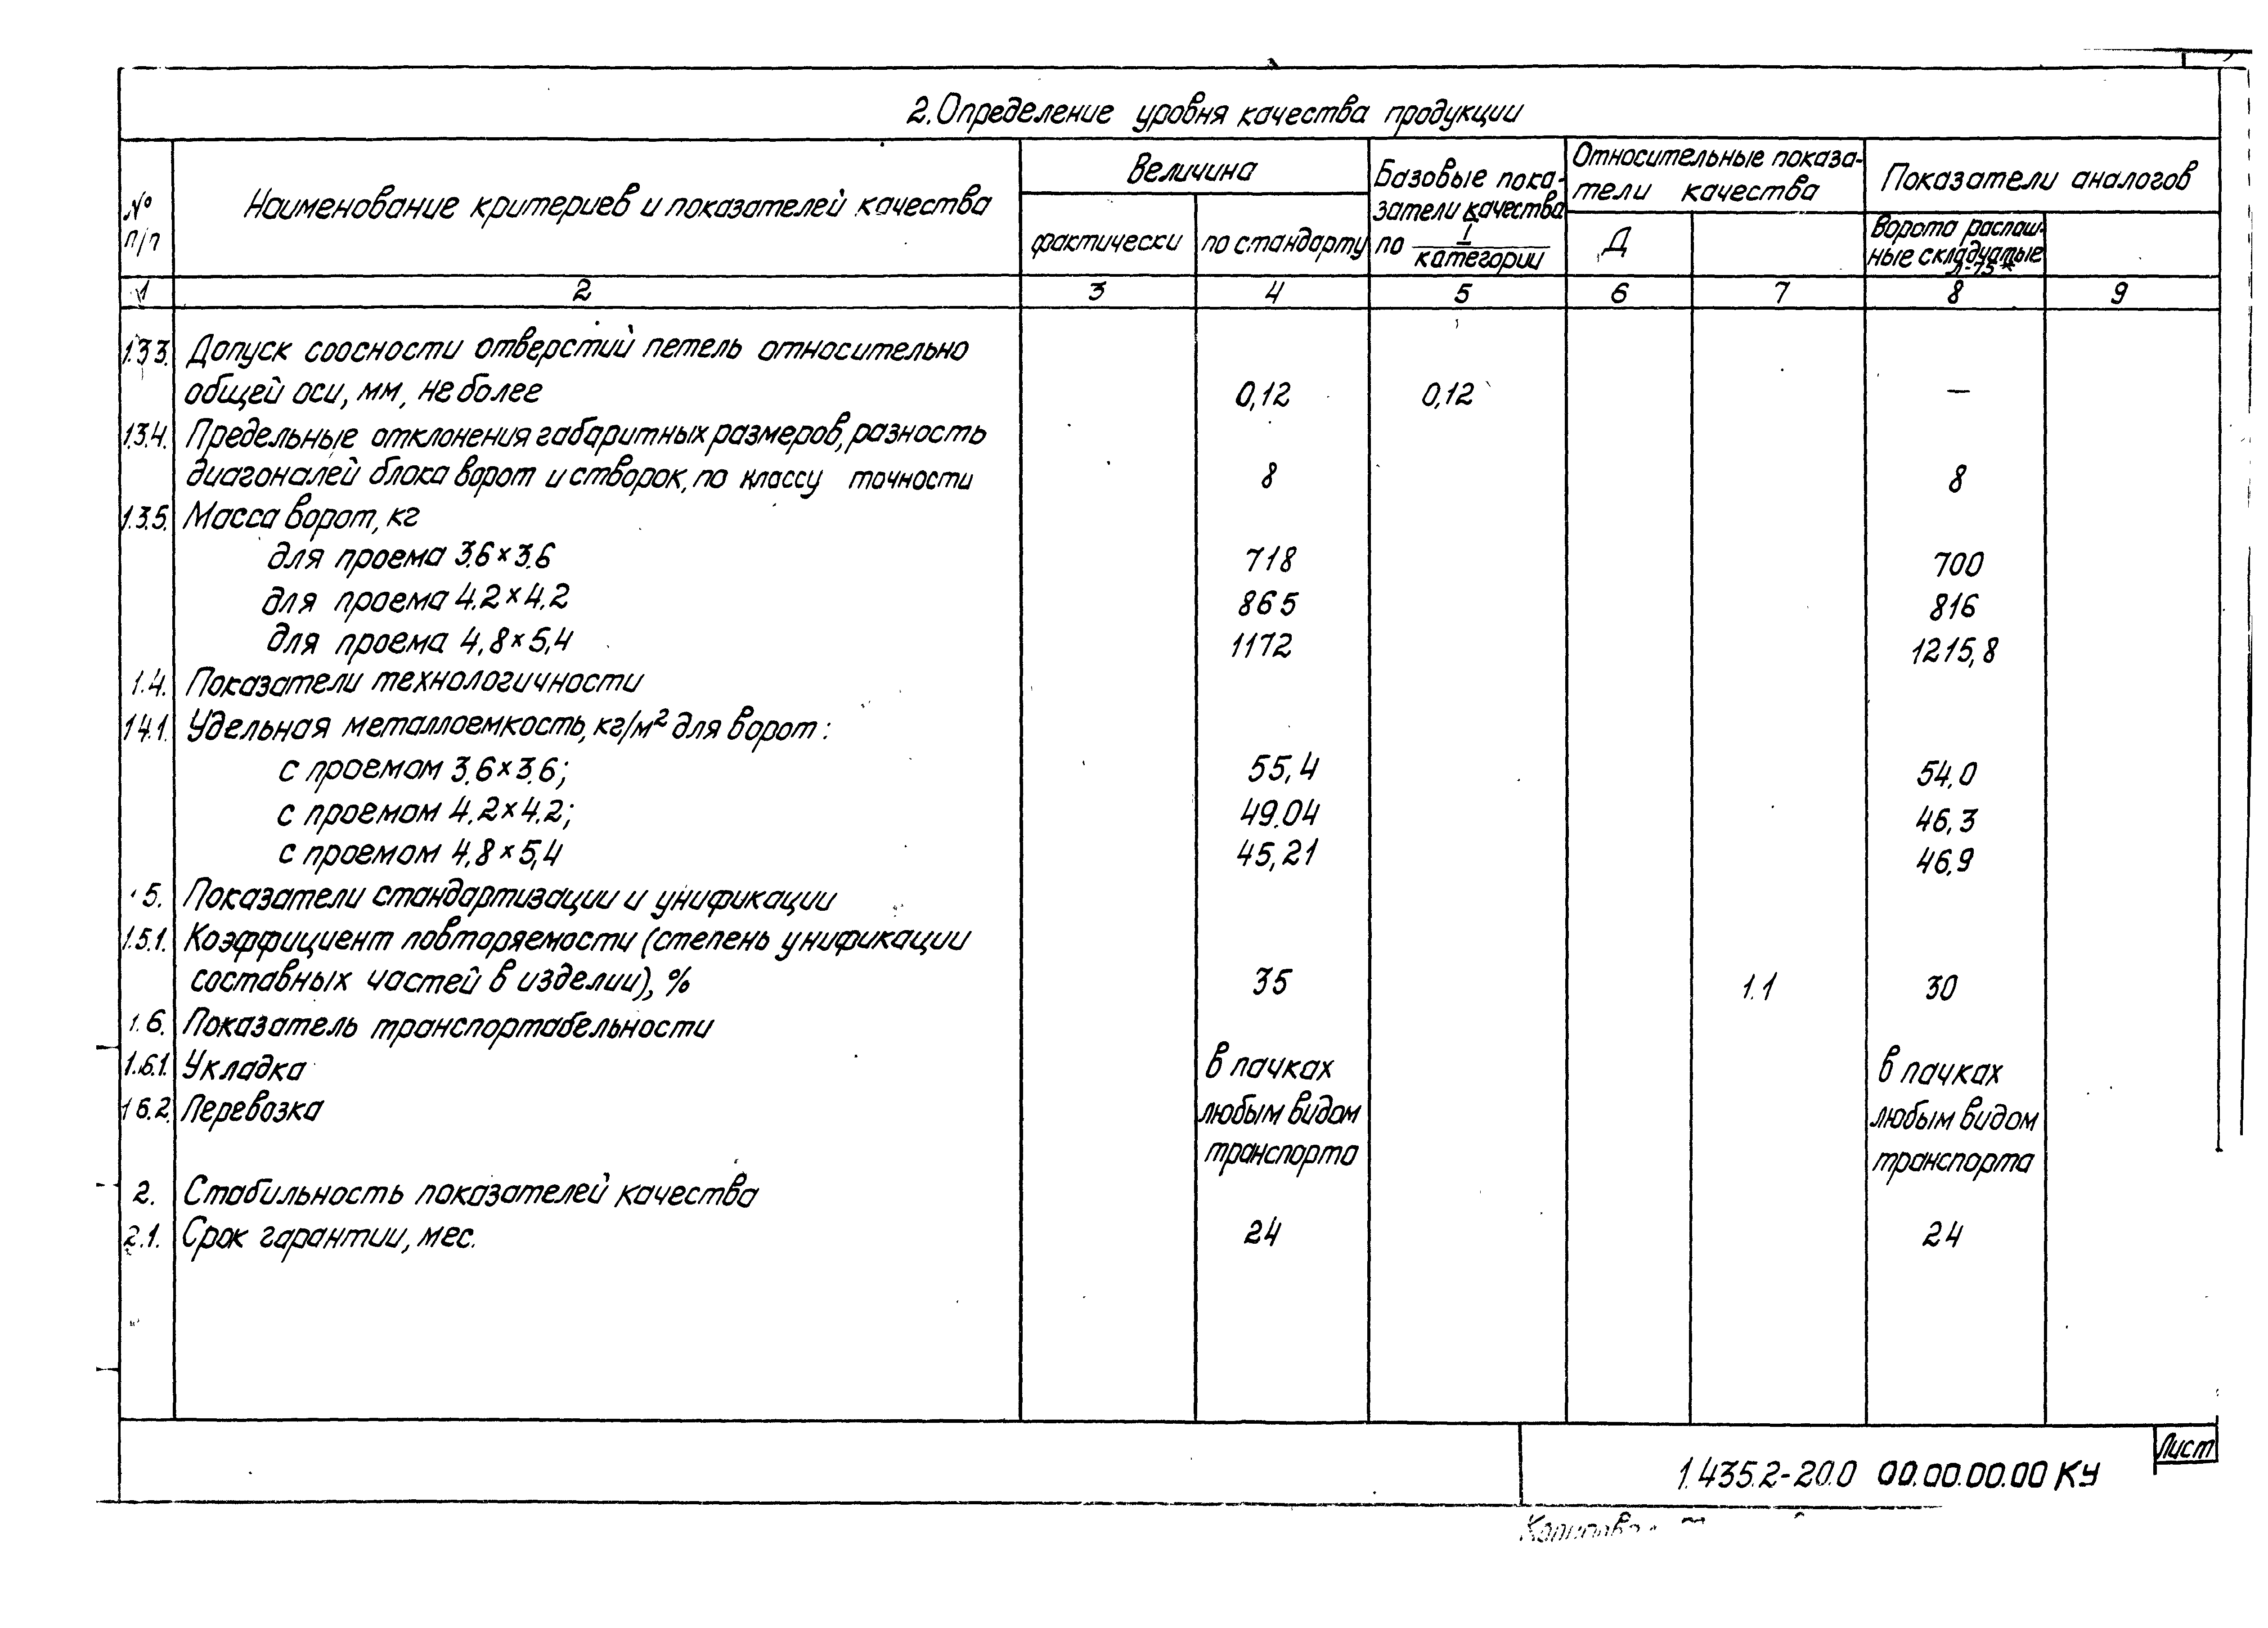 2. Определение уровня качества продукции
№ п/п
Наименование критериев и показателей качества
Величина
фактически
по стандарту
Базовые пока-
затели качества
по I
категории
Относительные показа-
тели качества
Д
Показатели аналогов
Ворота распаш-
ные складчатые
1 2 3 4 5 6 7 8 9
1.3.3. Допуск соосности отверстий петель относительно
общей оси, мм, не более 0,12 0,12 —
1.3.4. Предельные отклонения габаритных размеров, разность
диагоналей блока ворот и створок, по классу точности 8 8
1.3.5. Масса ворот, кг
для проема 3.6×3.6 718 700
для проема 4.2×4.2 865 816
для проема 4,8×5,4 1172 1215,8
1.4. Показатели технологичности
1.4.1. Удельная металлоемкость, кг/м² для ворот:
с проемом 3.6×3.6; 55,4 54,0
с проемом 4.2×4.2; 49.04 46,3
с проемом 4,8×5,4 45,21 46,9
5. Показатели стандартизации и унификации
1.5.1. Коэффициент повторяемости (степень унификации
составных частей в изделии), % 35 1.1 30
1.6. Показатель транспортабельности
1.6.1. Укладка в пачках в пачках
1.6.2. Перевозка любым видом любым видом
транспорта транспорта
2. Стабильность показателей качества
2.1. Срок гарантии, мес. 24 24
1.435.2-20.0 00.00.00.00 КУ
Лист